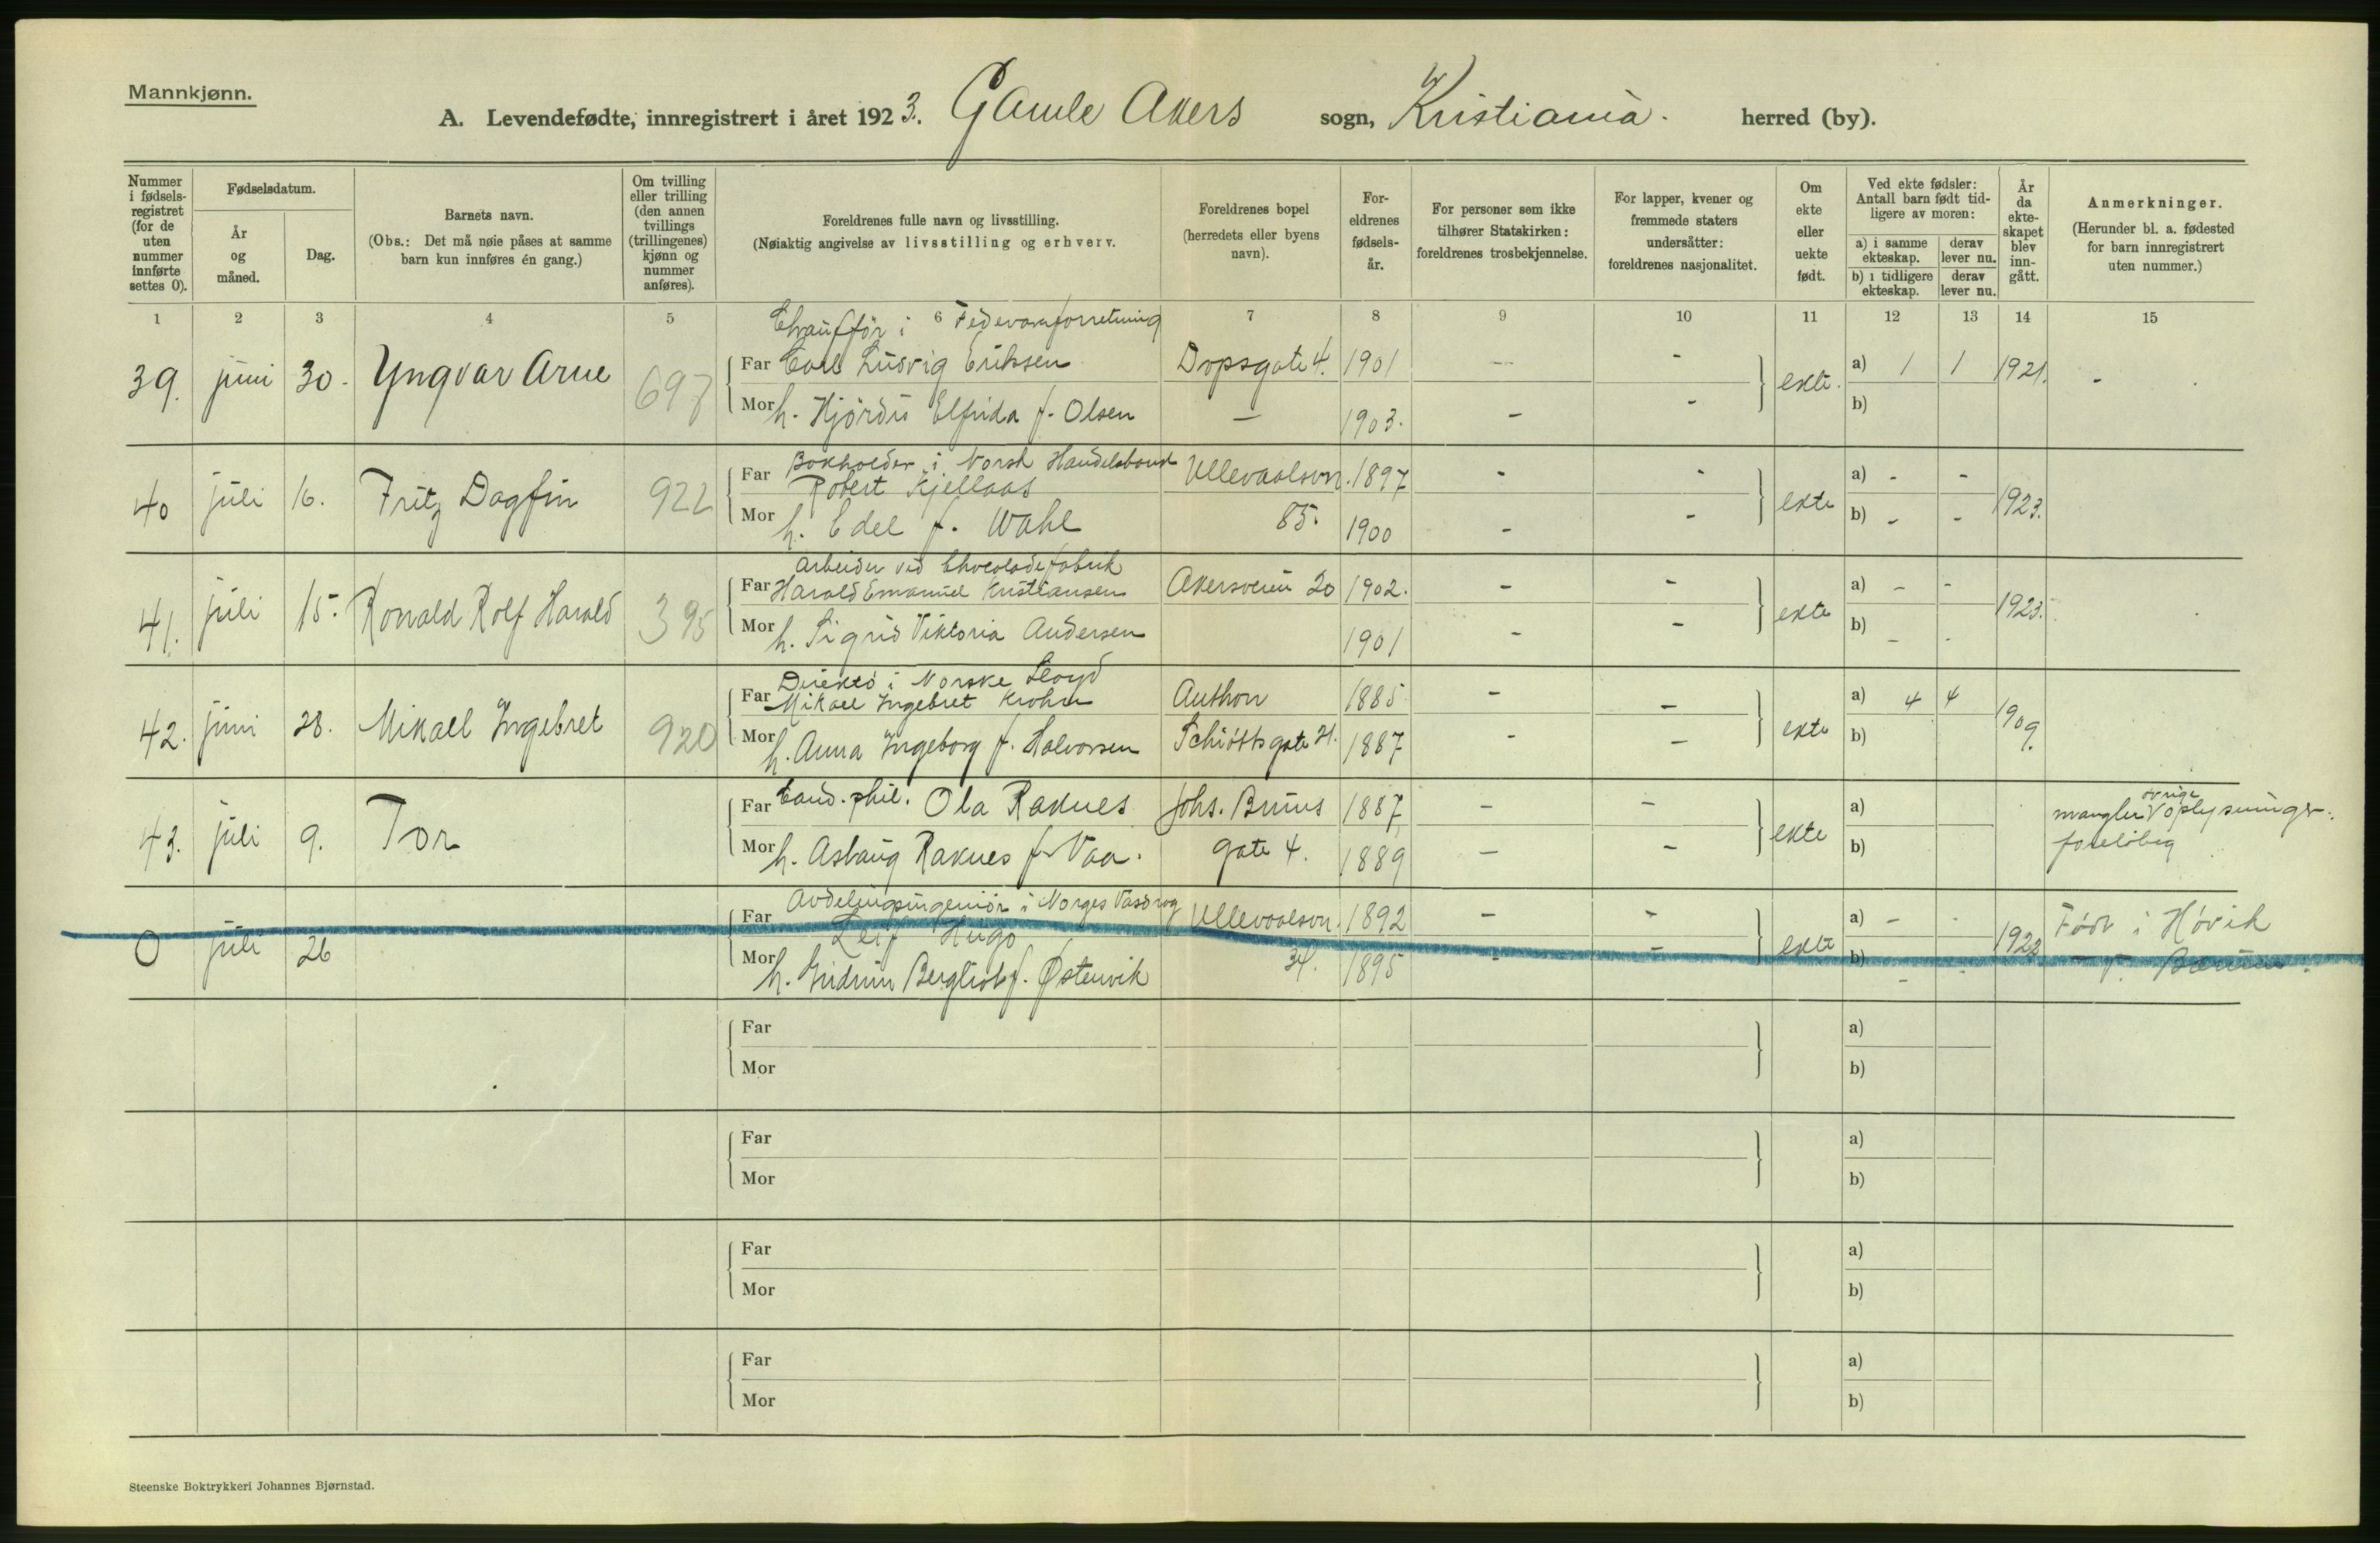 Mannkjønn.
A. Levendefødte, innregistrert i året 1923. Gamle Akers sogn, Kristiania. herred (by).
Nummer i fødsels-registret (for de uten nummer innførte settes 0).
Fødselsdatum.
År og måned.
Dag.
Barnets navn.
(Obs.: Det må nøie påses at samme barn kun innføres én gang.)
Om tvilling eller trilling (den annen tvillings (trillingenes) kjønn og nummer anføres).
Foreldrenes fulle navn og livsstilling.
(Nøiaktig angivelse av livsstilling og erhverv.
Foreldrenes bopel (herredets eller byens navn).
For-eldrenes fødsels-år.
For personer som ikke tilhører Statskirken: foreldrenes trosbekjennelse.
For lapper, kvener og fremmede staters undersåtter: foreldrenes nasjonalitet.
Om ekte eller uekte født.
Ved ekte fødsler: Antall barn født tid-ligere av moren:
a) i samme ekteskap.
derav lever nu.
b) i tidligere ekteskap.
derav lever nu.
År da ekte-skapet blev inn-gått.
Anmerkninger.
(Herunder bl. a. fødested for barn innregistrert uten nummer.)
1 2 3 4 5 6 7 8 9 10 11 12 13 14 15
Chauffør i Fedevareforretning
39. juni 30. Yngvar Arne 697 Far Carl Ludvig Eriksen Dopsgate 4. 1901 - - ekte. a) 1 1 1921. -
Mor h. Hjördis Elfrida f. Olsen - 1903. - - b)
Bokholder i Norsk Handelsbank
40 juli 16. Fritz Dagfin 922 Far Robert Kjellaas Ullevaalsvn. 1897 - - ekte a) - - 1923.
Mor h. Edel f. Wahl 85. 1900 - - b) - -
Arbeider ved Chocoladefabrik
41. juli 15. Ronald Rolf Harald 395 Far Harald Emanuel Kristiansen Akersveien 20 1902. - - ekte a) - - 1923.
Mor h. Sigrid Viktoria Andersen 1901 - - b) - -
Direktö i Norske Lloyd
42. juni 28. Mikael Ingebret 920 Far Mikael Ingebret Krohn Anthon 1885 - - ekte a) 4 4 1909.
Mor h. Anna Ingeborg f. Halvorsen Schiøttsgate 21. 1887 - - b)
43. juli 9. Tor Far Cand. phil. Ola Raknes Johs. Bruns 1887 - - ekte a) mangler øvrige oplysninger.
Mor h. Aslaug Raknes f. Vaa. gate 4. 1889 - - b) foreløbig
Avdelingsingeniör i Norges Vasdrag
0 juli 26 Far Leif Hugo Ullevaalsvn. 1892 - - ekte a) - - 1922 Født i Høvik
Mor h. Gudrun Bergliot f. Østenvik 34. 1895 - - b) - - V. Bærum.
Far a)
Mor b)
Far a)
Mor b)
Far a)
Mor b)
Far a)
Mor b)
Steenske Boktrykkeri Johannes Bjørnstad.